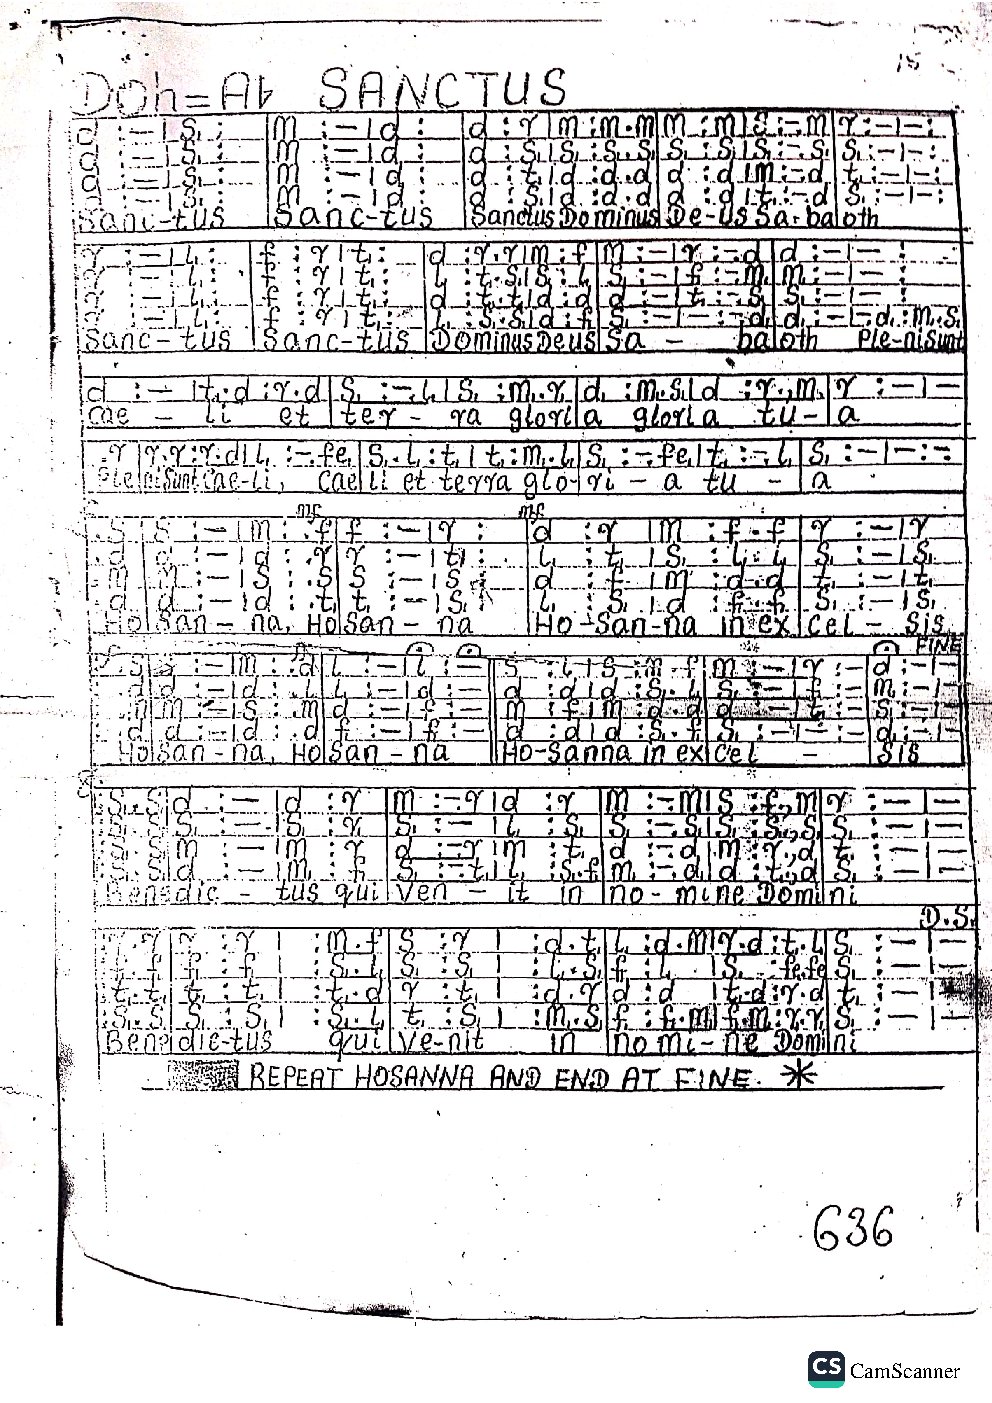 15
Doh = A♭ SANCTUS
d :– | s, : | m :– | d : | d : r | m : m.m | m : m | s :– m | r :– | – :
d :– | s, : | m :– | d : | d : s, | s, : s,.s, | s, : s, | s, :– .s, | s, :– | – :
d :– | s, : | m :– | d : | d : t, | d : d.d | d : d | m :– d | t, :– | – :
d :– | s, : | m :– | d : | d : s, | d : d.d | d : d | t, :– d | s, :– | – :
Sanc-tus Sanc-tus Sanctus Dominus De-us Sa-ba oth
r :– | l, : | f : r | t, : | d : r.r | m : f | m :– | r :– d | d :– | – :
r :– | l, : | f : r | t, : | l, : t,.s, | s, : l, | s, :– | f, :– m, | m, :– | – :
r :– | l, : | f : r | t, : | d : t,.t, | d : d | d :– | t, :– s, | s, :– | – :
r :– | l, : | f : r | t, : | l, : s,.s, | d : f, | s, :– | – :– d, | d, :– | – d, : m,.s,
Sanc-tus Sanc-tus Dominus Deus Sa - ba oth Ple-ni Sunt
d :– | t,.d : r.d | s, :– .l, | s, : m,.r, | d, : m,.s, | d : r.,m, | r :– | –
Cae - li et ter - ra gloria gloria tu - a
.r | r.r : r.d | l, :– .fe, | s,.l, : t, | t, : m,.l, | s, :– .fe, | t, :– .l, | s, :– | – :
Ple ni Sunt Cae-li, Cae li et terra glo-ri - a tu - a
mf mf
.s | s :– | m : .f | f :– | r : | d : r | m : f.f | r :– | r
.d | d :– | d : .r | r :– | t, : | l, : t, | s, : l,.l, | s, :– | s,
.m | m :– | s : .s | s :– | s : | d : f | m : d.d | t, :– | t,
.d | d :– | d : .t, | t, :– | s, : | l, : s, | d : f,.f, | s, :– | s,
Ho San - na, Ho San - na Ho-San-na in ex Cel - Sis
FINE
.s | s :– | m : .d | l :– | l :– | s : l | s : m.f | m :– | r :– | d :– | –
.d | d :– | d : .l, | l, :– | d :– | d : d | d : s,.l, | s, :– | f, :– | m, :– | –
.m | m :– | s : .m | d :– | f :– | m : f | m : d.d | d :– | t, :– | s, :– | –
.d | d :– | d : .d | f, :– | f, :– | d : d | d : s,.f, | s, :– | – :– | d, :– | –
Ho San - na, Ho San - na Ho-Sanna in ex Cel - Sis
: s,.s, | d :– | d : r | m :– r | d : r | m :– m | s : f.,m | r :– | –
: s,.s, | s, :– | s, : r | s, :– | l, : s, | s, :– s, | s, : s,.,s, | s, :– | –
: s,.s, | m :– | m : r | d :– r | m : t, | d :– d | m : r.,d | t, :– | –
: s,.s, | d :– | m : f | s, :– t, | l, : s,.f, | m, :– d | d : t,.,d | s, :– | –
Benedic - tus qui Ven - it in no-mine Domini
D.S.
: r.r | r : r | : m.f | s : r | : d.t, | l, : d.m | r.d : t,.l, | s, :– | –
: f.f | f : f | : s,.l, | s, : s, | : l,.s, | f, : l, | s, : fe,.fe, | s, :– | –
: t,.t, | t, : t, | : t,.d | r : t, | : d.r | d : d | t,.d : r.d | t, :– | –
: s,.s, | s, : s, | : s,.l, | t, : s, | : m,.s, | f, : f,.m, | f,.m, : r,.r, | s, :– | –
Benedic-tus qui Ve-nit in nomi-ne Domini
REPEAT HOSANNA AND END AT FINE. *
636
CS CamScanner